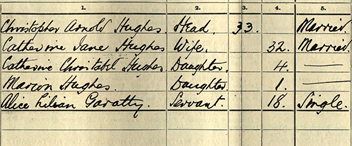 1. 2. 3. 4. 5.
Christopher Arnold Hughes Head. 33. Married.
Catherine Jane Hughes Wife. 32. Married.
Catherine Christabel Hughes Daughter. 4. —
Marion Hughes. Daughter 1. —
Alice Lilian Garatty. Servant. 18. Single.